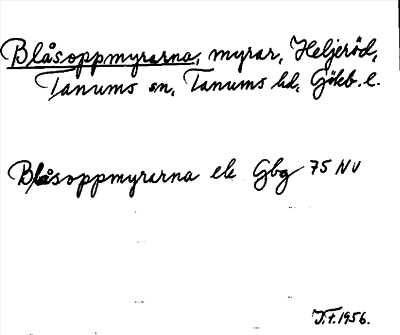 Blåsoppmyrarna, myrar, Heljeröd,
Tanums sn, Tanums hd, Göteb. l.
Blåsoppmyrarna ek Gbg 75 NV
J.t. 1956.